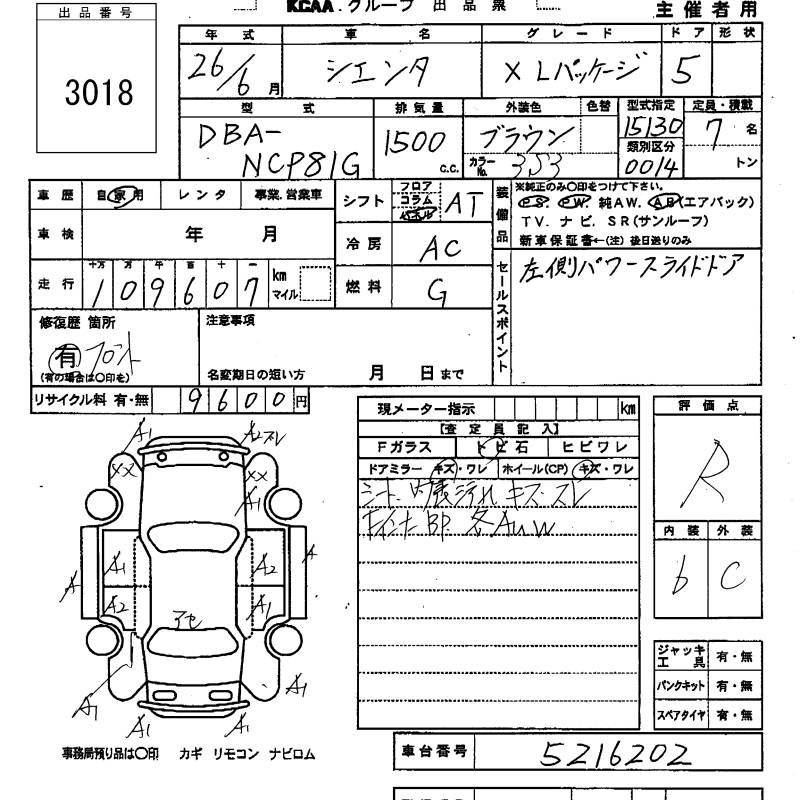 KCAA.グループ 出品票
主催者用
出品番号
3018
年式 車名 グレード ドア 形状
26/6月 シエンタ X Lパッケージ 5
型式 排気量 外装色 色替 型式指定 定員・積載
DBA-NCP81G 1500 c.c. ブラウン 15130 7 名
カラーNo. 3J3 類別区分 0014 トン
車歴 自家用 レンタ 事業.営業車
シフト フロア コラム パネル AT
装備品
※純正のみ○印をつけて下さい。
P.S. P.W. 純AW. AB(エアバック)
TV. ナビ. SR(サンルーフ)
新車保証書←(注)後日送りのみ
車検 年 月
冷房 AC
走行 十万 万 千 百 十 一
109607 km マイル
燃料 G
セールスポイント
左側パワースライドドア
修復歴 箇所
有 フロント
(有の場合は○印を)
注意事項
名変期日の短い方 月 日まで
リサイクル料 有・無 9600円
現メーター指示 km
【査定員記入】
Fガラス トビ石 ヒビワレ
ドアミラー キズ・ワレ ホイール(CP) キズ・ワレ
シート 内張汚れ キズ・スレ
BP 各AUW
評価点
R
内装 外装
b C
A1 A2 スレ
XX XX
A1
A A1 A2 A
A2 A1
アセ
A1 A1
A1 A1
ジャッキ工具 有・無
パンクキット 有・無
スペアタイヤ 有・無
事務局預り品は○印 カギ リモコン ナビロム
車台番号 5216202